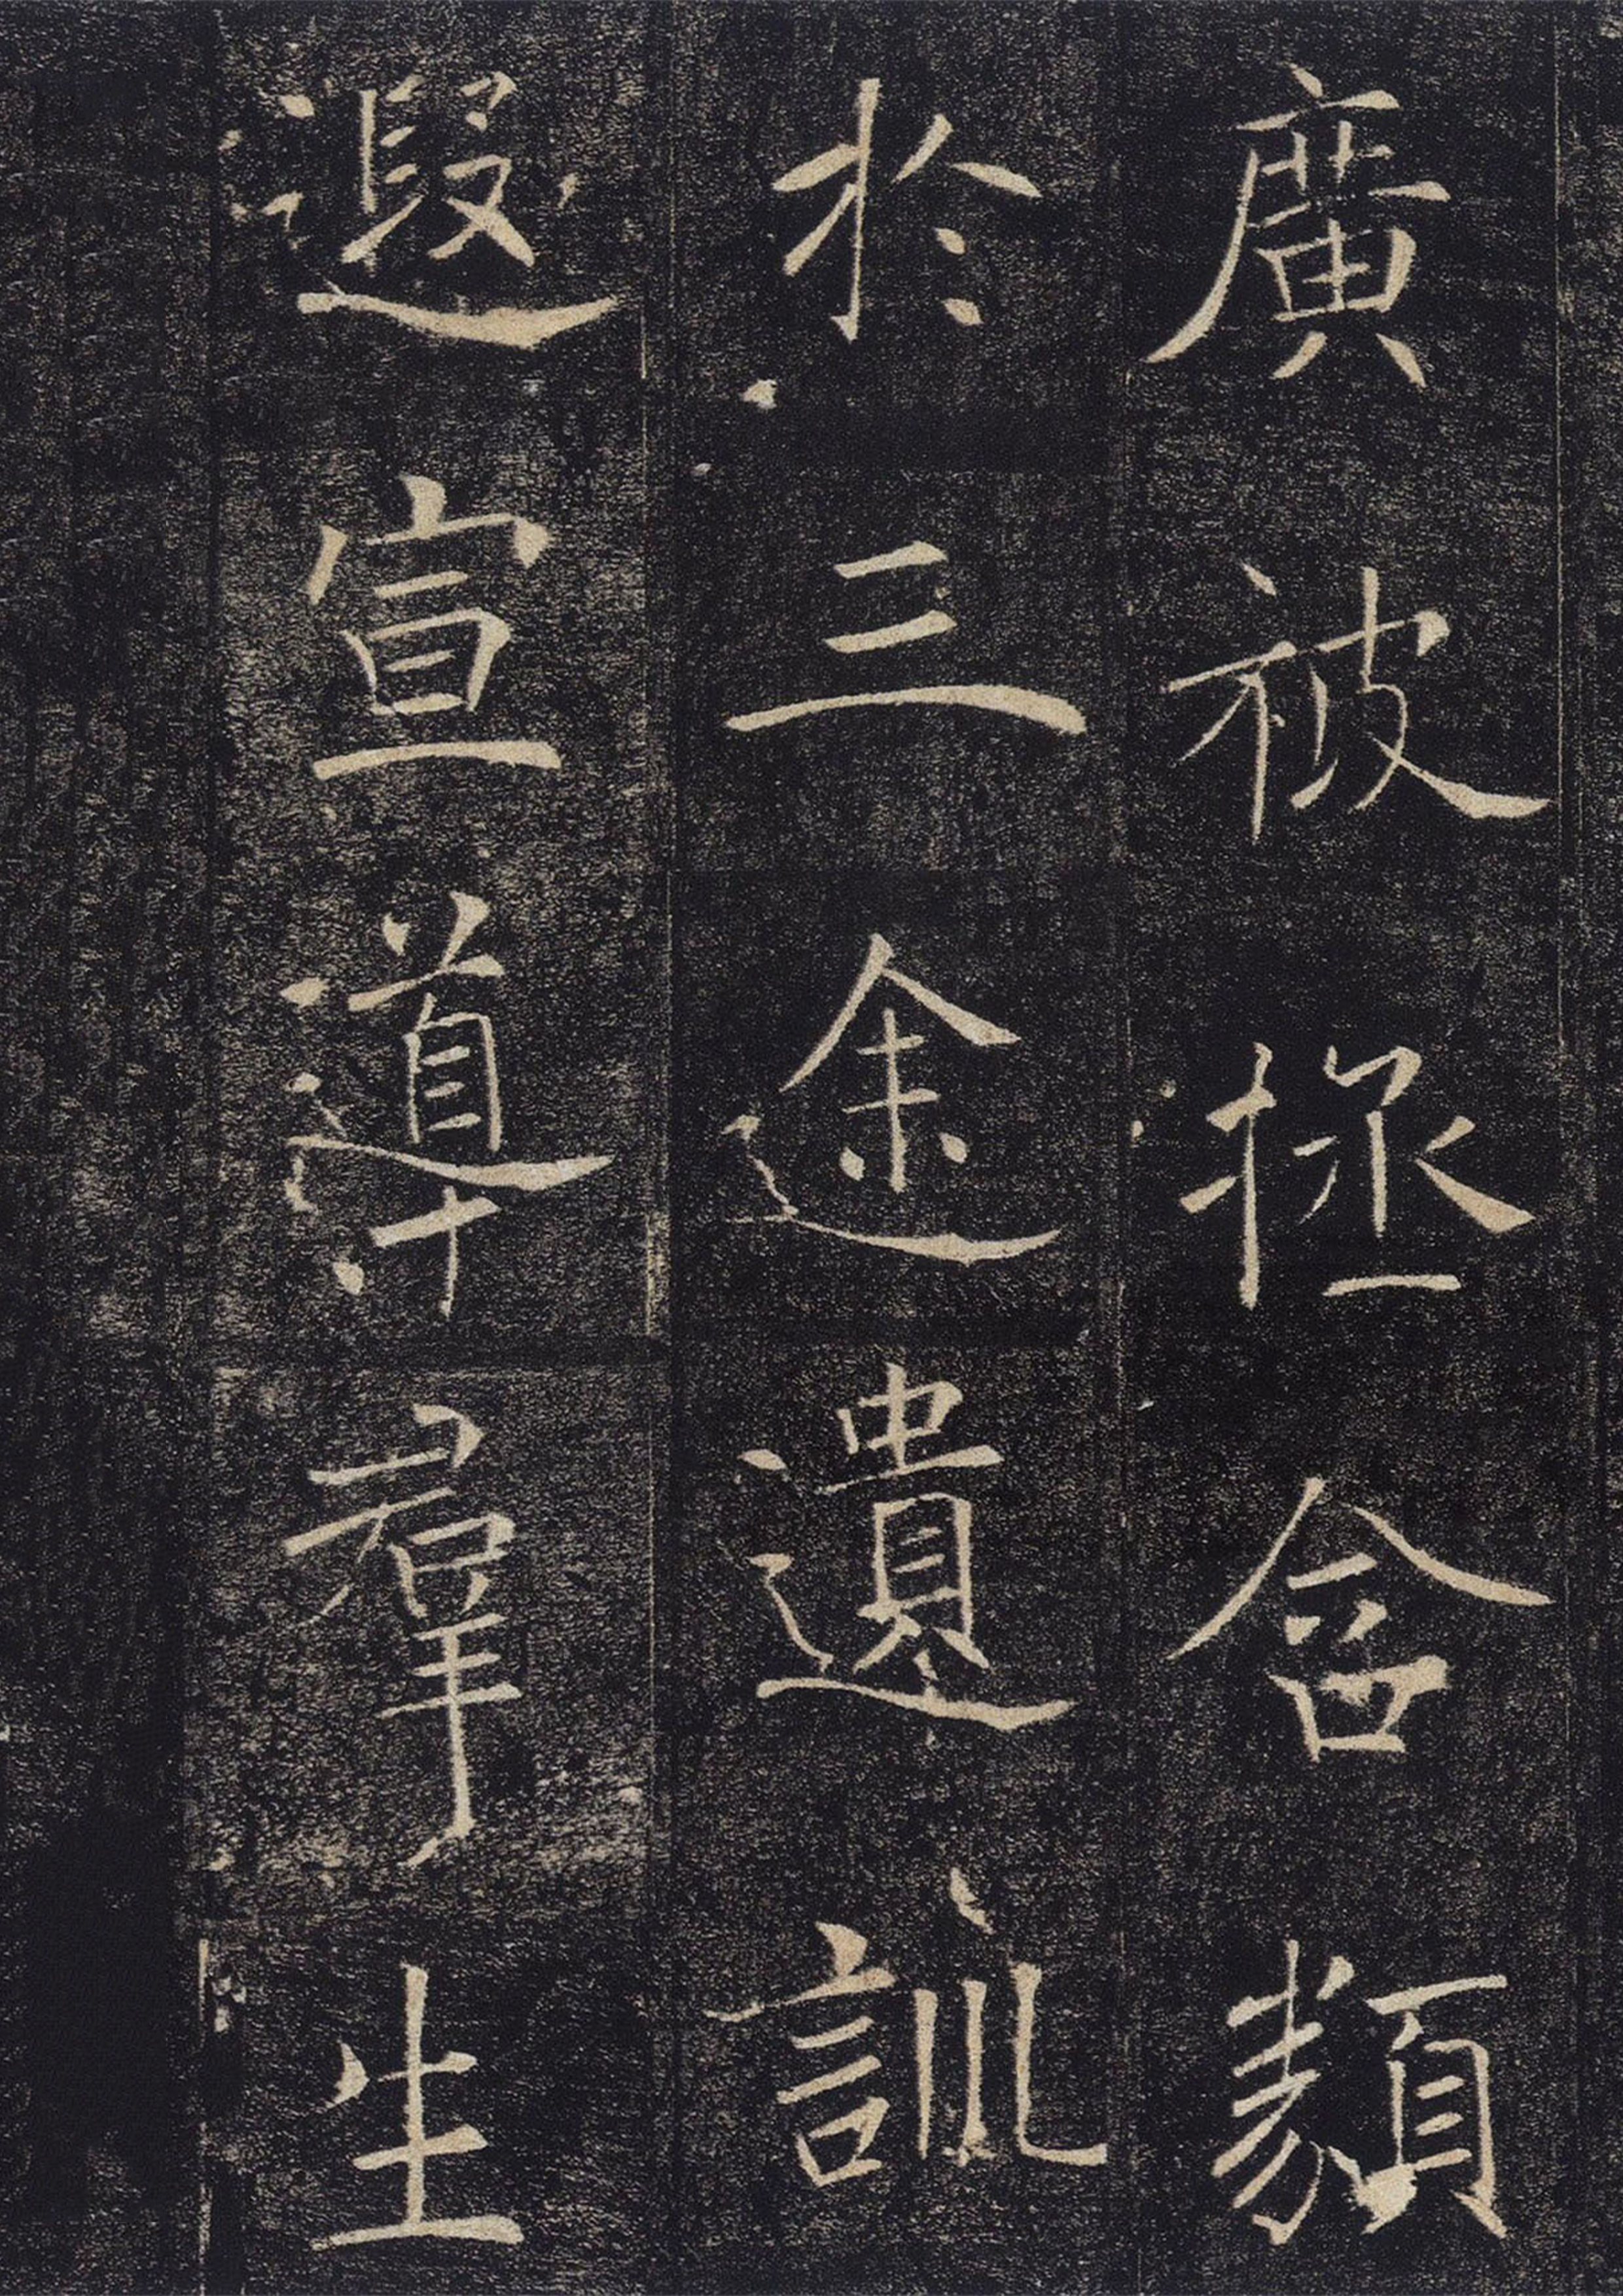 廣被拯含類
於三途遺訓
遐宣導羣生